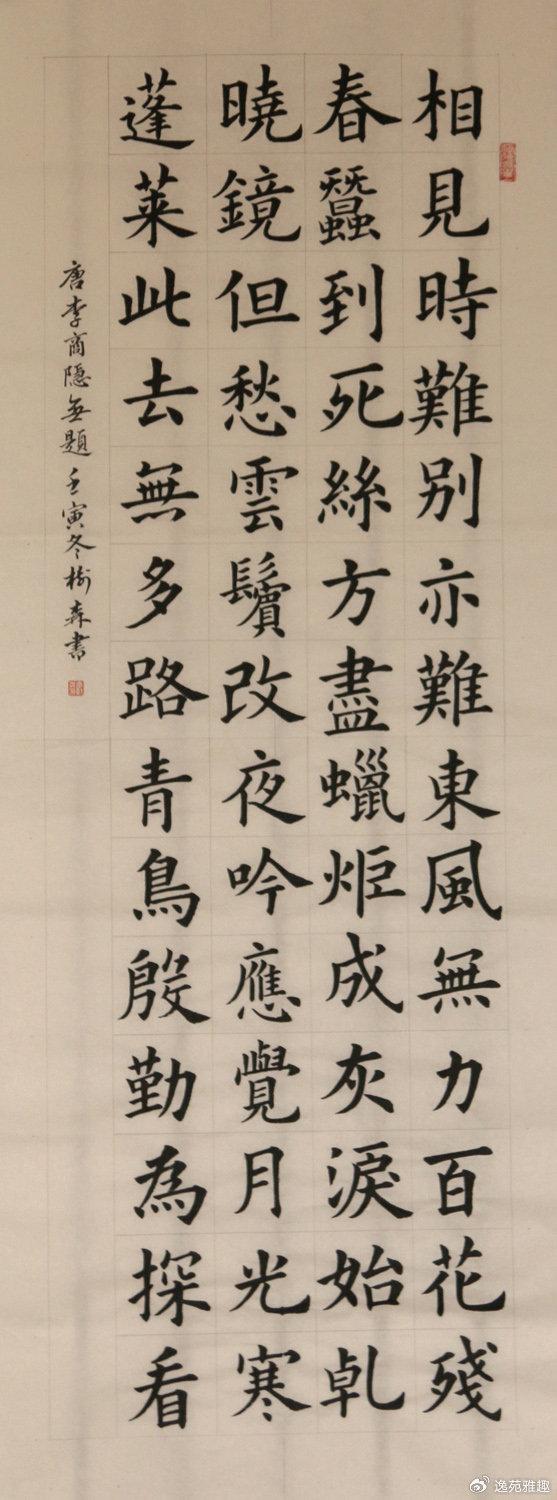 相見時難别亦難東風無力百花殘
春蠶到死絲方盡蠟炬成灰淚始乹
曉鏡但愁雲鬢改夜吟應覺月光寒
蓬萊此去無多路青鳥殷勤為探看
唐李商隱無題壬寅冬樹森書
逸苑雅趣